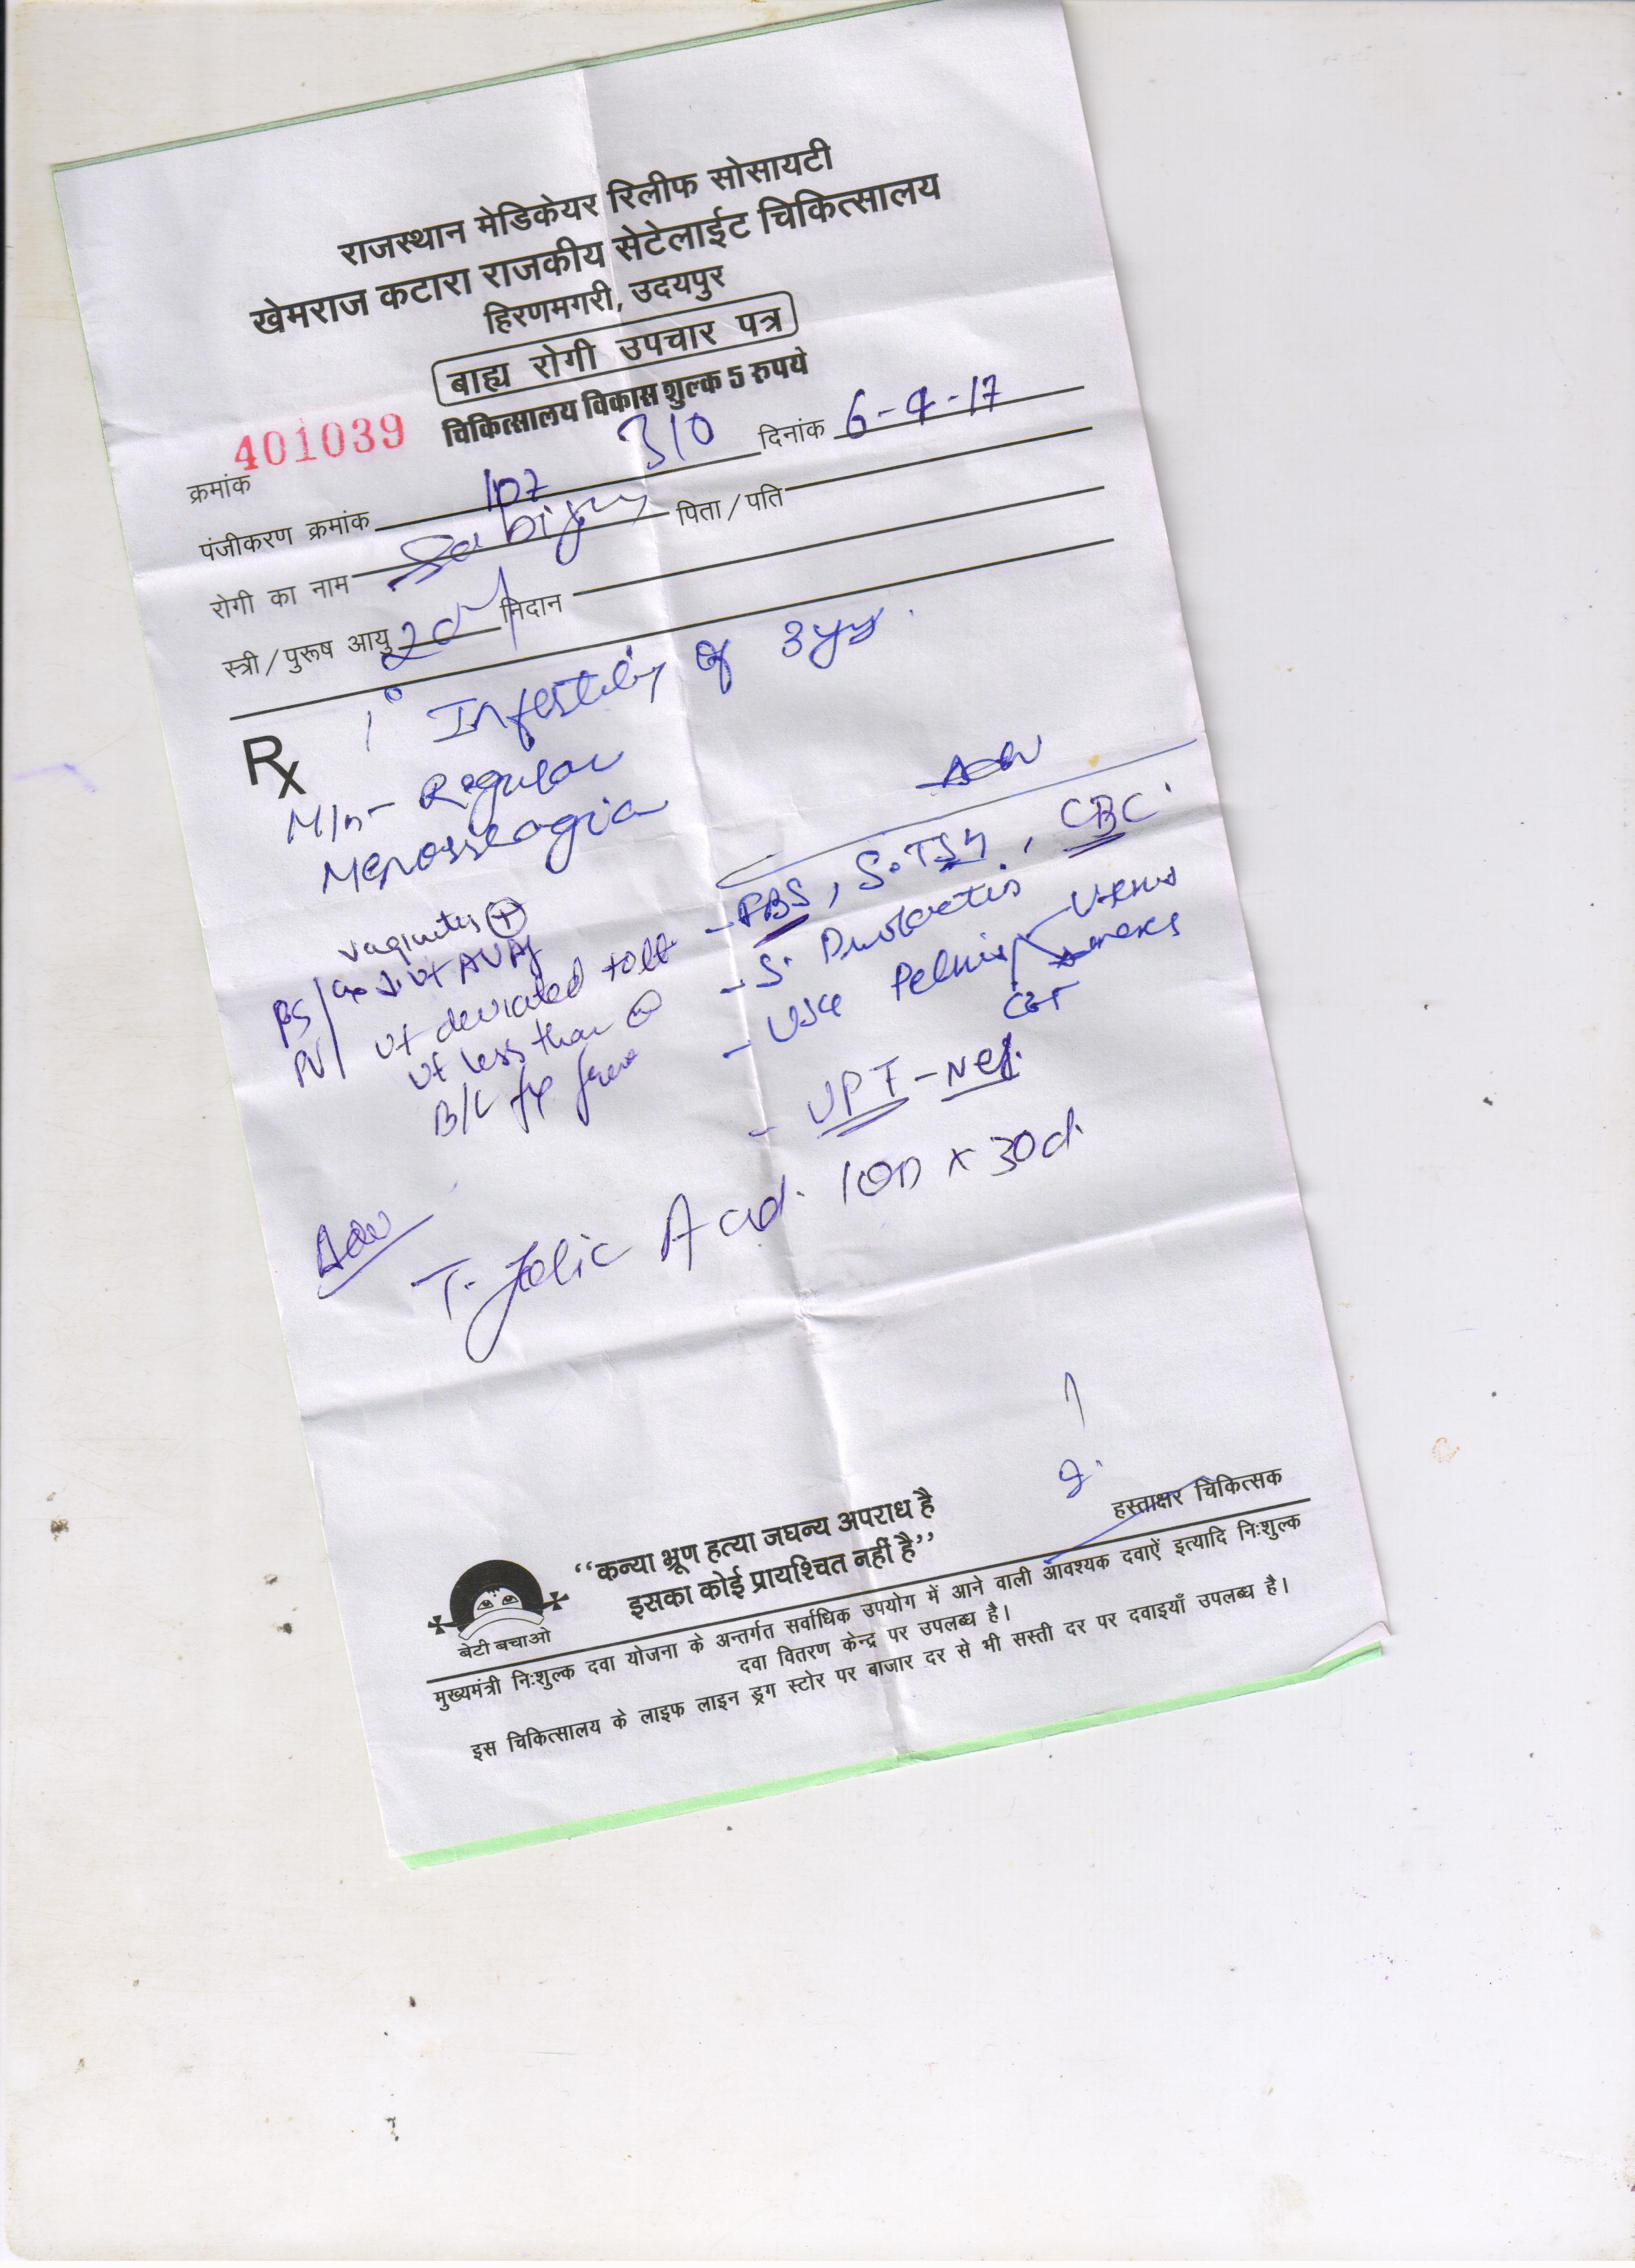 राजस्थान मेडिकेयर रिलीफ सोसायटी
खेमराज कटारा राजकीय सेटेलाईट चिकित्सालय
हिरणमगरी, उदयपुर
बाह्य रोगी उपचार पत्र
चिकित्सालय विकास शुल्क 5 रुपये
क्रमांक 401039 310 दिनांक 6-4-17
पंजीकरण क्रमांक 107
रोगी का नाम पिता/पति
स्त्री/पुरूष आयु निदान
Rx
1° Infertility of 3yrs
M/h- Regular
Menorrhagia
Adv
- FBS, S.TSH, CBC
- S. Prolactin
- USG Pelvis Uterus
vaginitis +
PS/ ut AVAf
PV/ ut deviated to lt
ut less than
B/L fx free
- UPT-Neg.
Adv
T. Folic Acid. 1OD x 30d.
हस्ताक्षर चिकित्सक
‘‘कन्या भ्रूण हत्या जघन्य अपराध है
इसका कोई प्रायश्चित नहीं है’’
बेटी बचाओ
मुख्यमंत्री निःशुल्क दवा योजना के अन्तर्गत सर्वाधिक उपयोग में आने वाली आवश्यक दवाऐं इत्यादि निःशुल्क
दवा वितरण केन्द्र पर उपलब्ध है।
इस चिकित्सालय के लाइफ लाइन ड्रग स्टोर पर बाजार दर से भी सस्ती दर पर दवाइयाँ उपलब्ध है।